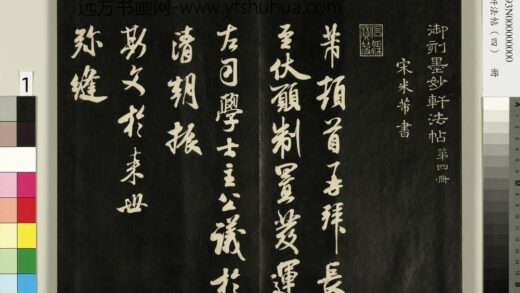 远方书画网-www.yfshuhua.com
御刻墨妙軒法帖 第四冊
宋米芾書
芾頓首再拜長
至伏願制置發運
左司學士主公議於
清朝振
斯文於來世
弥縫
法帖（四） 册
03N000000000
1